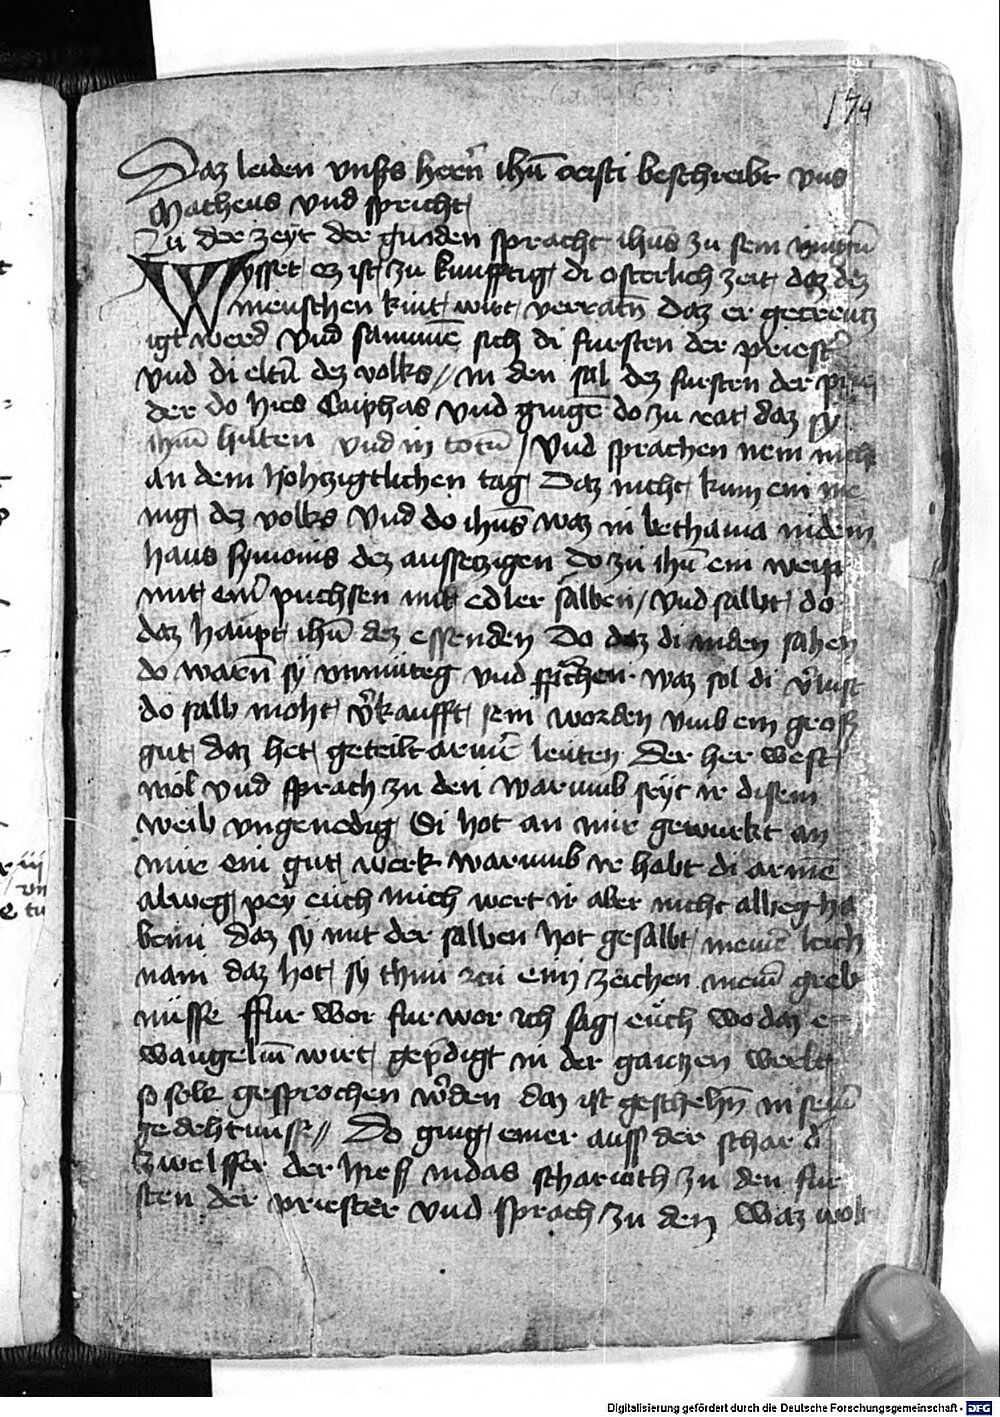 174
Daz leiden vnßs herrn ihū cristi beschreibt vns
Matheus vnd spricht
Zu der zeyt der gnaden sprach ihus zu sein iungern
Wysset ez ist zu kunfftig di osterlich zeit daz dez
menschen kint wirt verratn daz er gecreutz
igt werd vnd samneē sich di fursten der priest
vnd di eltn dez volks // in den sal dez fursten der
der do hies Caiphas vnd gingē do zu rat daz sy
ihm hilten vnd in totn / vnd sprachen nein nicht
an dem hohzigtlichen tag Daz nicht kum ein me
nig dez volks Vnd do ihūs waz in bethania in dem
haus symonis dez aussetzigen Do zu ihū ein weip
mit einr puchsen mit edler salben / vnd salbt do
daz haupt ihū dez essenden Do daz di sahen
do warn sy vnmuteg vnd sprachen waz sol di vlust
do salb moht v̉kaufft sein worden vmb ein groß
gut daz het geteilt armē leuten Der her west
wol vnd sprach zu den warumb seyt ir disem
weib vngenedig Si hot an mir gewurkt an
mir ein gut werk warumb ir habt di armē
alweg pey euch mich wert ir aber nicht alweg ha
ben daz sy mit der salben hot gesalbt meinē leich
nam daz hot sy thun zu eim zeichen meinr greb
nusse ffur wor fur wor ich sag euch wo daz e
wangelim wirt gep̄digt in der gantzen werlt
so solt gesprochen w̉den daz ist geschehn in seinr
gedehtnisse // Do ging einer auß der schar d
zwelffer der hieß iudas scharioth zu den fur
sten der priester vnd sprach zu den waz wolt
Digitalisierung gefördert durch die Deutsche Forschungsgemeinschaft - DFG